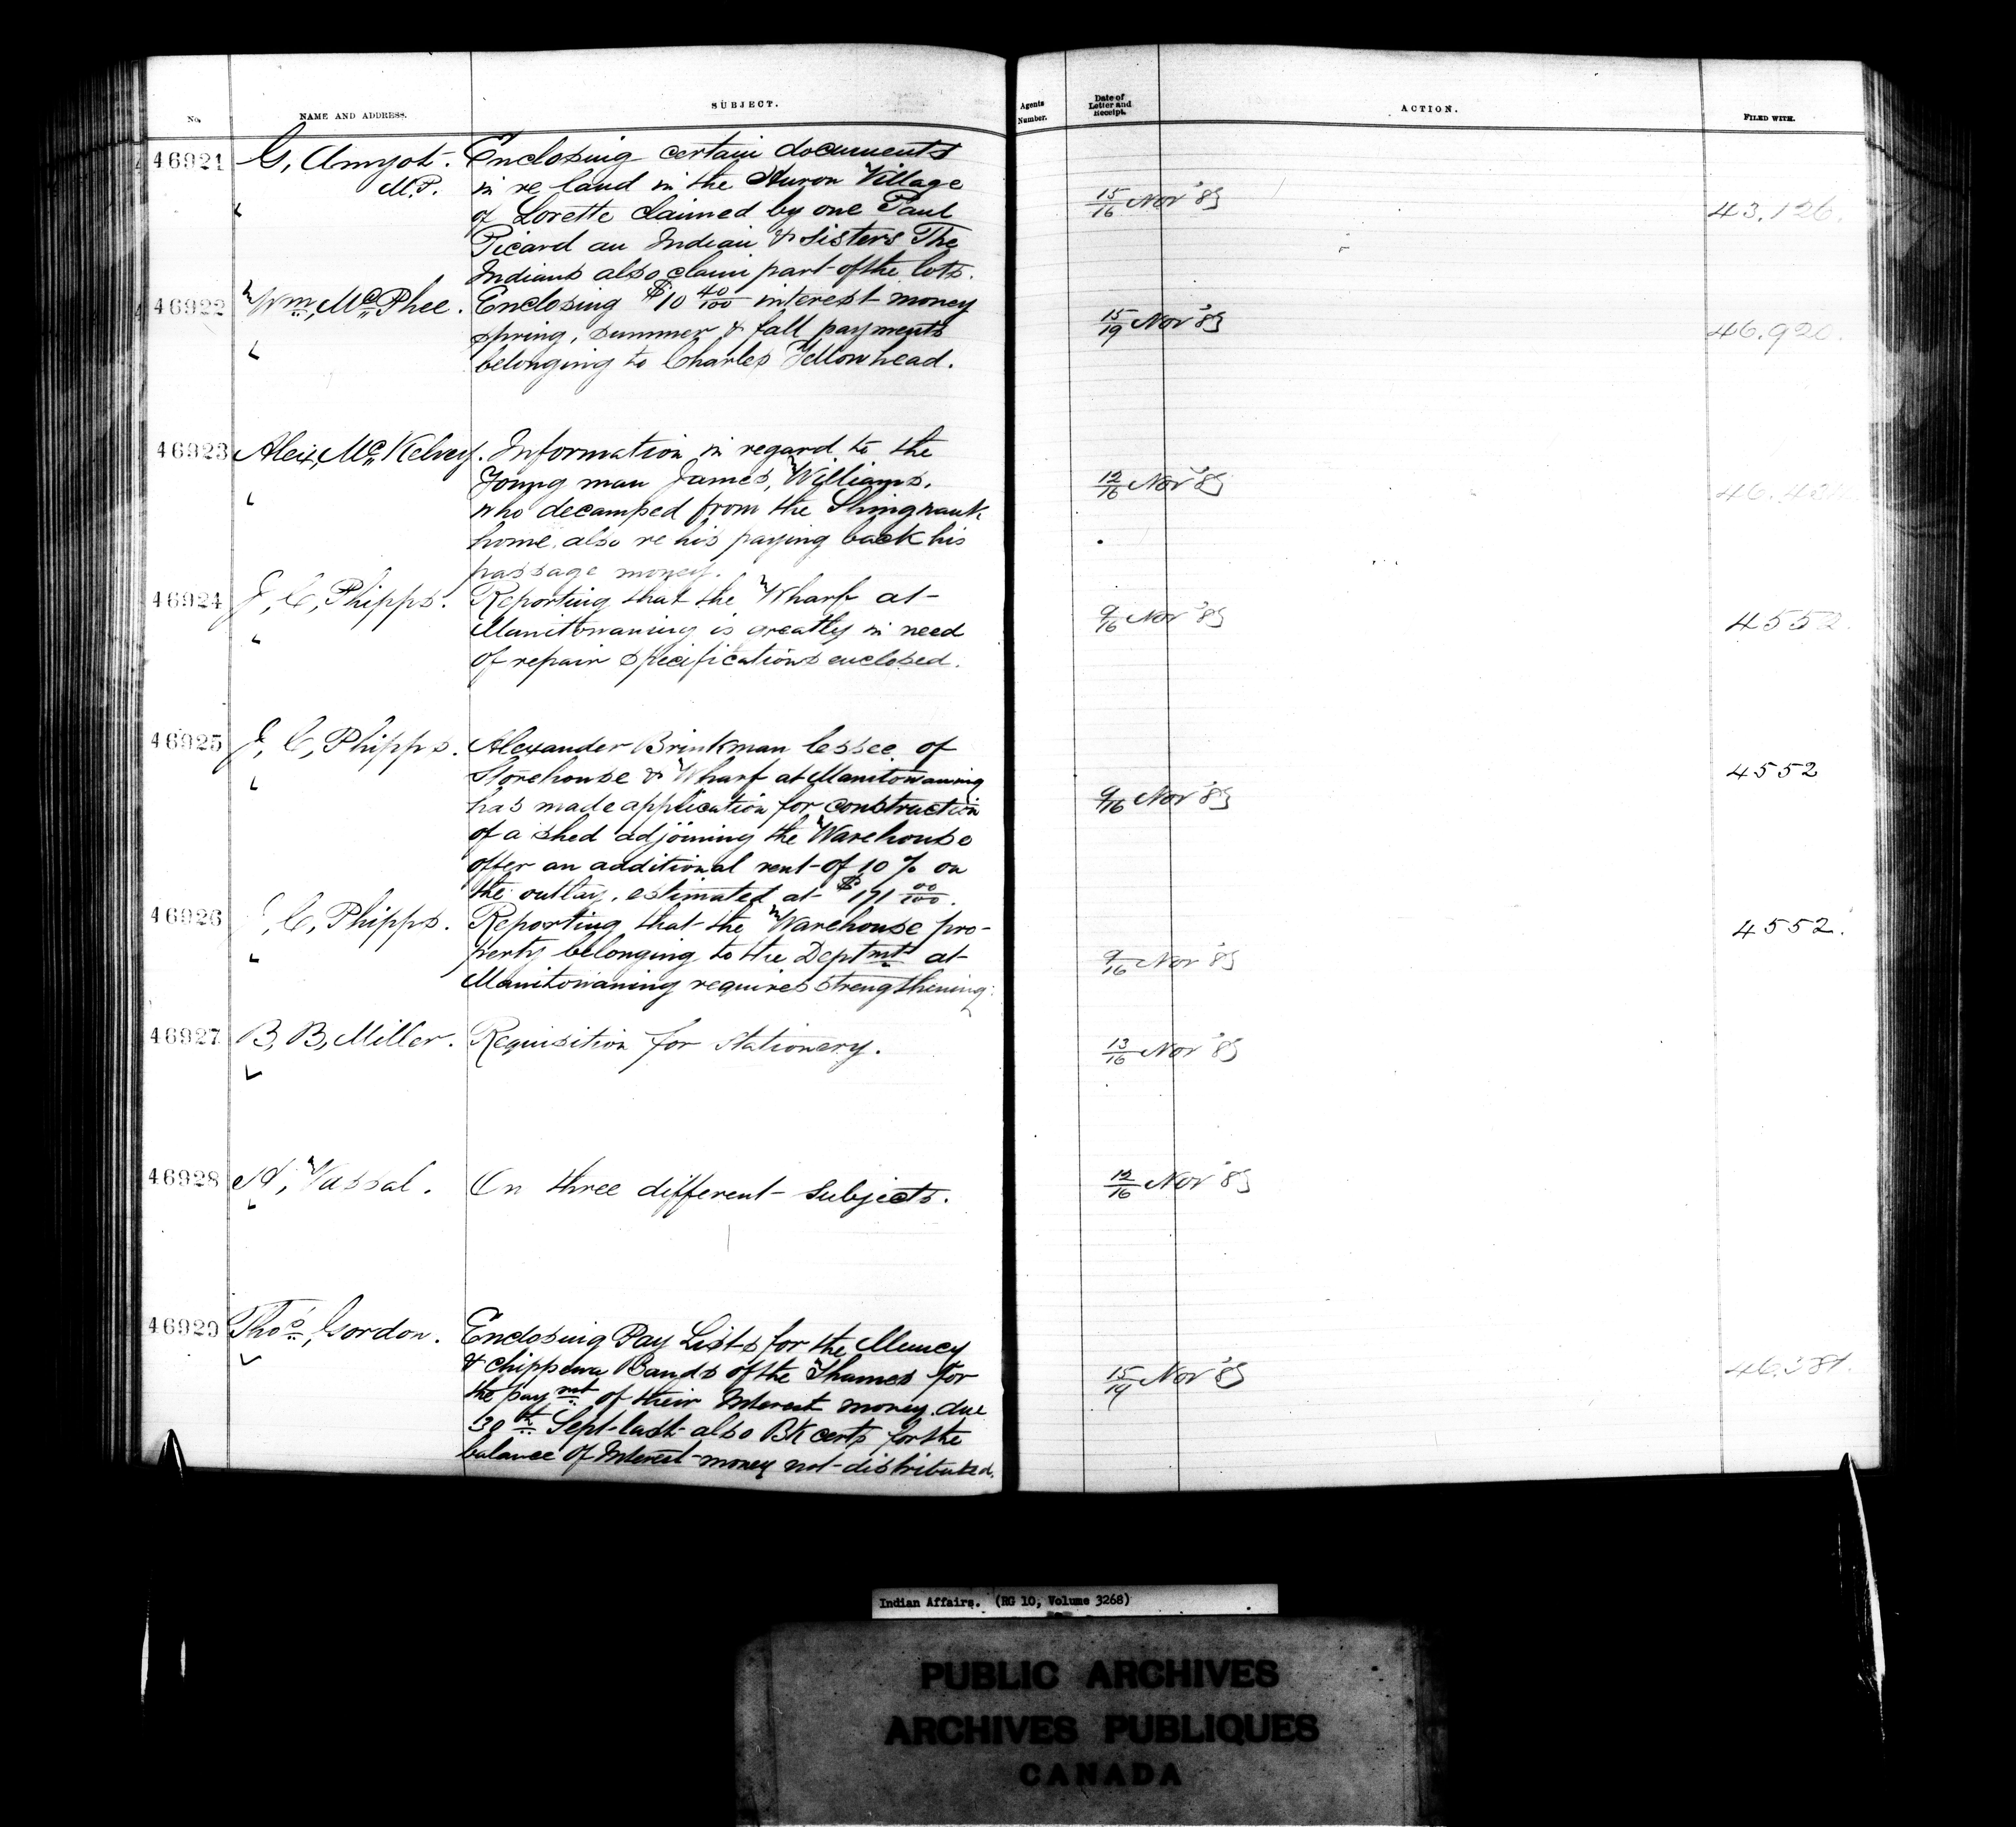 No. NAME AND ADDRESS. SUBJECT. Agents Number. Date of Letter and Receipt. ACTION. FILED WITH.
46921 G, Amyot. Enclosing certain documents
M.P. in re land in the Huron Village 15/16 Nov '83
of Lorette claimed by one Paul 43.126.
Picard an Indian & Sisters The
Indians also claim part of the lots.
46922 Wm, McPhee. Enclosing $10 40/100 interest money
spring, summer & fall payments 15/19 Nov '83 46.920.
belonging to Charles Yellowhead.
46923 Alex, McKelvey. Information in regard to the
Young man James, Williams. 12/16 Nov '83
who decamped from the Shingwauk
home. also re his paying back his
passage money.
46924 J, C, Phipps. Reporting that the Wharf at
Manitowaning is greatly in need 9/16 Nov '83 4552.
of repair specifications enclosed.
46925 J, C, Phipps. Alexander Brinkman lessee of
Storehouse & Wharf at Manitowaning 4552
has made application for construction 9/16 Nov '83
of a shed adjoining the Warehouse
offer an additional rent of 10 % on
the outlay, estimated at $171 00/100.
46926 J, C, Phipps. Reporting that the Warehouse pro- 4552.
perty belonging to the Deptmt at 9/16 Nov '83
Manitowaning requires strengthening.
46927 B, B, Miller. Requisition for Stationery. 13/16 Nov '83
46928 H, Vassal. On three different Subjects. 12/16 Nov '83
46929 Thos, Gordon. Enclosing Pay Lists for the Muncy
& Chippewa Bands of the Thames for 15/19 Nov '83
the paymt of their Interest money due
30th Sept last also Bk certs for the
balance of Interest money not distributed.
Indian Affairs. (RG 10, Volume 3268)
PUBLIC ARCHIVES
ARCHIVES PUBLIQUES
CANADA